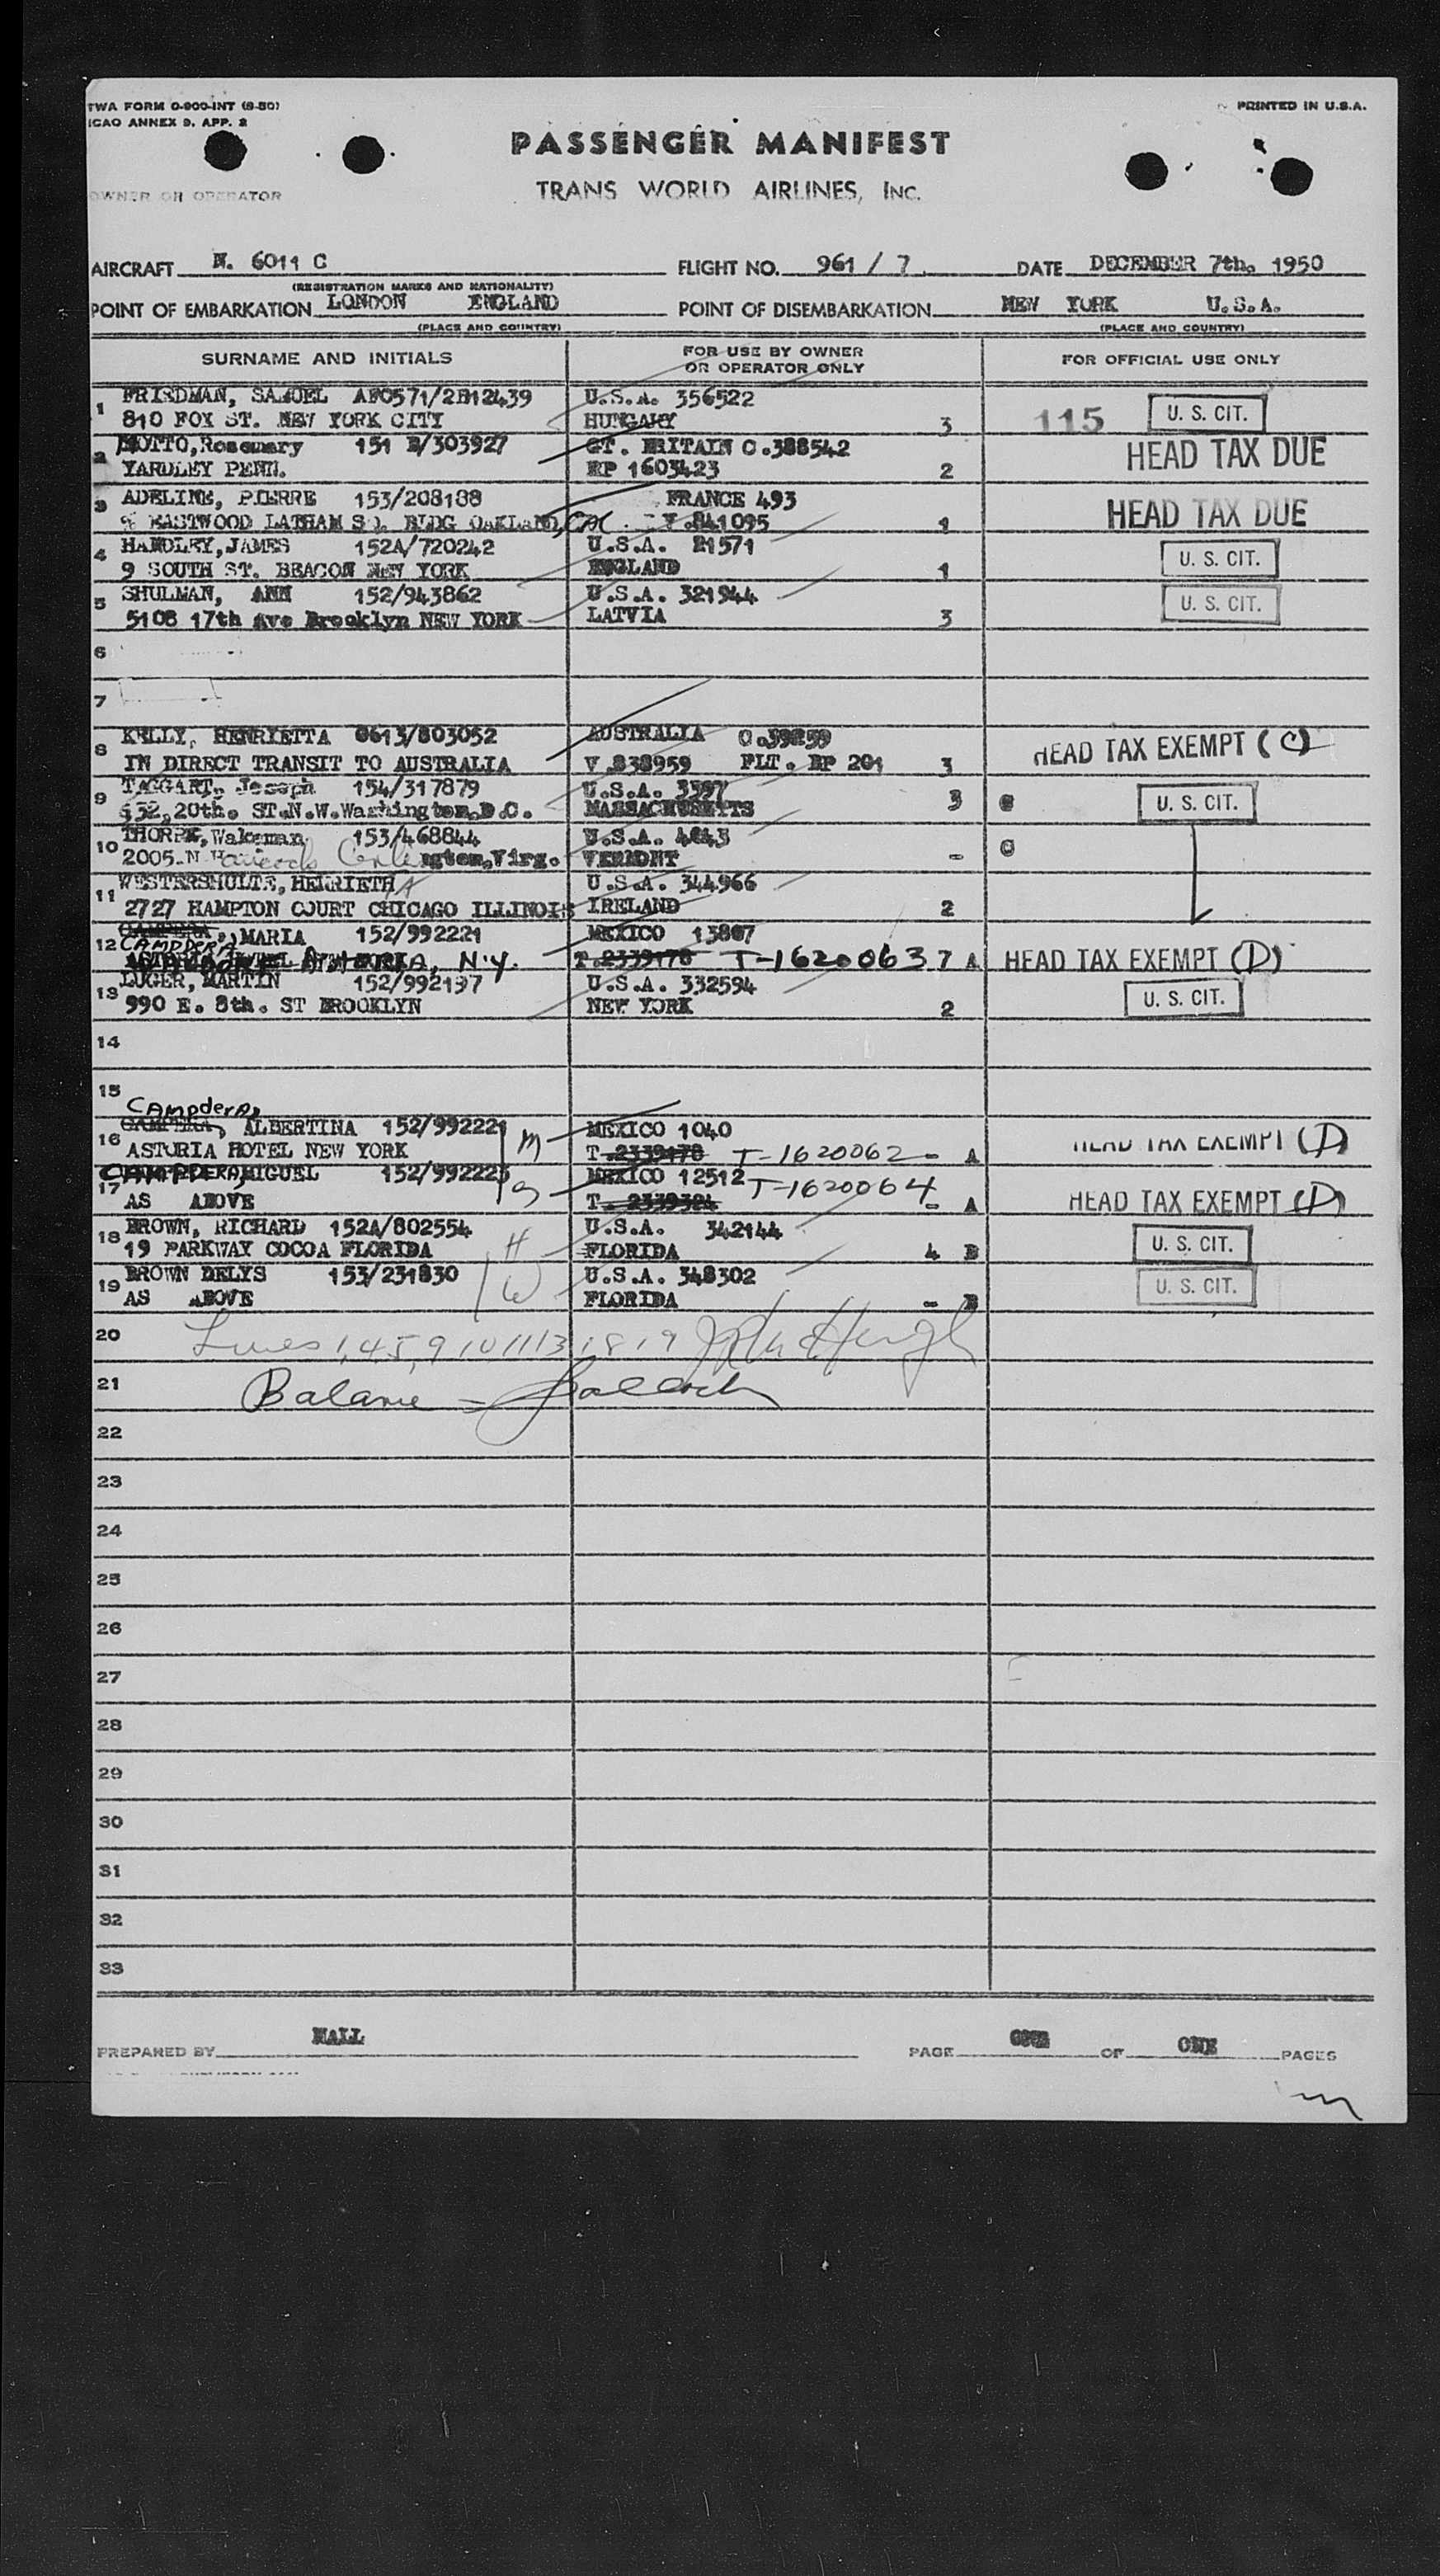 TWA FORM O-900-INT (9-50)
ICAO ANNEX 9, APP. 2
PRINTED IN U.S.A.
PASSENGER MANIFEST
TRANS WORLD AIRLINES, INC.
OWNER OR OPERATOR
AIRCRAFT N. 6011 C FLIGHT NO. 961 / 7 DATE DECEMBER 7th. 1950
(REGISTRATION MARKS AND NATIONALITY)
POINT OF EMBARKATION LONDON ENGLAND POINT OF DISEMBARKATION NEW YORK U.S.A.
(PLACE AND COUNTRY) (PLACE AND COUNTRY)
SURNAME AND INITIALS FOR USE BY OWNER OR OPERATOR ONLY FOR OFFICIAL USE ONLY
1 FRIEDMAN, SAMUEL AF0571/2B12439 U.S.A. 356522
810 FOX ST. NEW YORK CITY HUNGARY 3 115 U. S. CIT.
2 MOTTO, Rosemary 151 B/303927 GT. BRITAIN C.388542
YARDLEY PENN. RP 1603423 2 HEAD TAX DUE
3 ADELINE, PIERRE 153/208188 FRANCE 493
% EASTWOOD LATHAM SQ. BLDG OAKLAND, CAL. V.841095 1 HEAD TAX DUE
4 HANDLEY, JAMES 152A/720242 U.S.A. 21571
9 SOUTH ST. BEACON NEW YORK ENGLAND 1 U. S. CIT.
5 SHULMAN, ANN 152/943862 U.S.A. 321944
5108 17th Ave Brooklyn NEW YORK LATVIA 3 U. S. CIT.
6
7
8 KELLY, HENRIETTA 0613/803052 AUSTRALIA C.39859
IN DIRECT TRANSIT TO AUSTRALIA V.838959 FLT. BP 201 3 HEAD TAX EXEMPT (C)
9 TAGGART, Joseph 154/317879 U.S.A. 3397
532, 20th. ST.N.W.Washington,D.C. MASSACHUSETTS 3 C U. S. CIT.
10 THORPE, Wakeman 153/468844 U.S.A. 4043
2005 N ngton, Virg. VERMONT - C
11 WESTERSHULTE, HENRIETHA U.S.A. 344966
2727 HAMPTON COURT CHICAGO ILLINOIS IRELAND 2
12 CAMPERA, MARIA 152/992221 MEXICO 13807
CAMPDERA
ASTORIA, N.Y. T.2339178 T-1620063 7 A HEAD TAX EXEMPT (D)
13 LUGER, MARTIN 152/992197 U.S.A. 332594
990 E. 8th. ST BROOKLYN NEW YORK 2 U. S. CIT.
14
15
CAMPderA,
16 CAMPERA, ALBERTINA 152/992221 M MEXICO 1040
ASTORIA HOTEL NEW YORK T.2339178 T-1620062 - A HEAD TAX EXEMPT (D)
17 CAMPDERA, MIGUEL 152/992223 S MEXICO 12512 T-1620064
AS ABOVE T. 2339324 - A HEAD TAX EXEMPT (D)
18 BROWN, RICHARD 152A/802554 H U.S.A. 342144
19 PARKWAY COCOA FLORIDA FLORIDA 4 B U. S. CIT.
19 BROWN DELYS 153/231830 W U.S.A. 348302
AS ABOVE FLORIDA - B U. S. CIT.
20 Lines 1,4,5,9,10,11,13,18,19
21 Balance =
22
23
24
25
26
27
28
29
30
31
32
33
PREPARED BY HALL PAGE ONE OF ONE PAGES